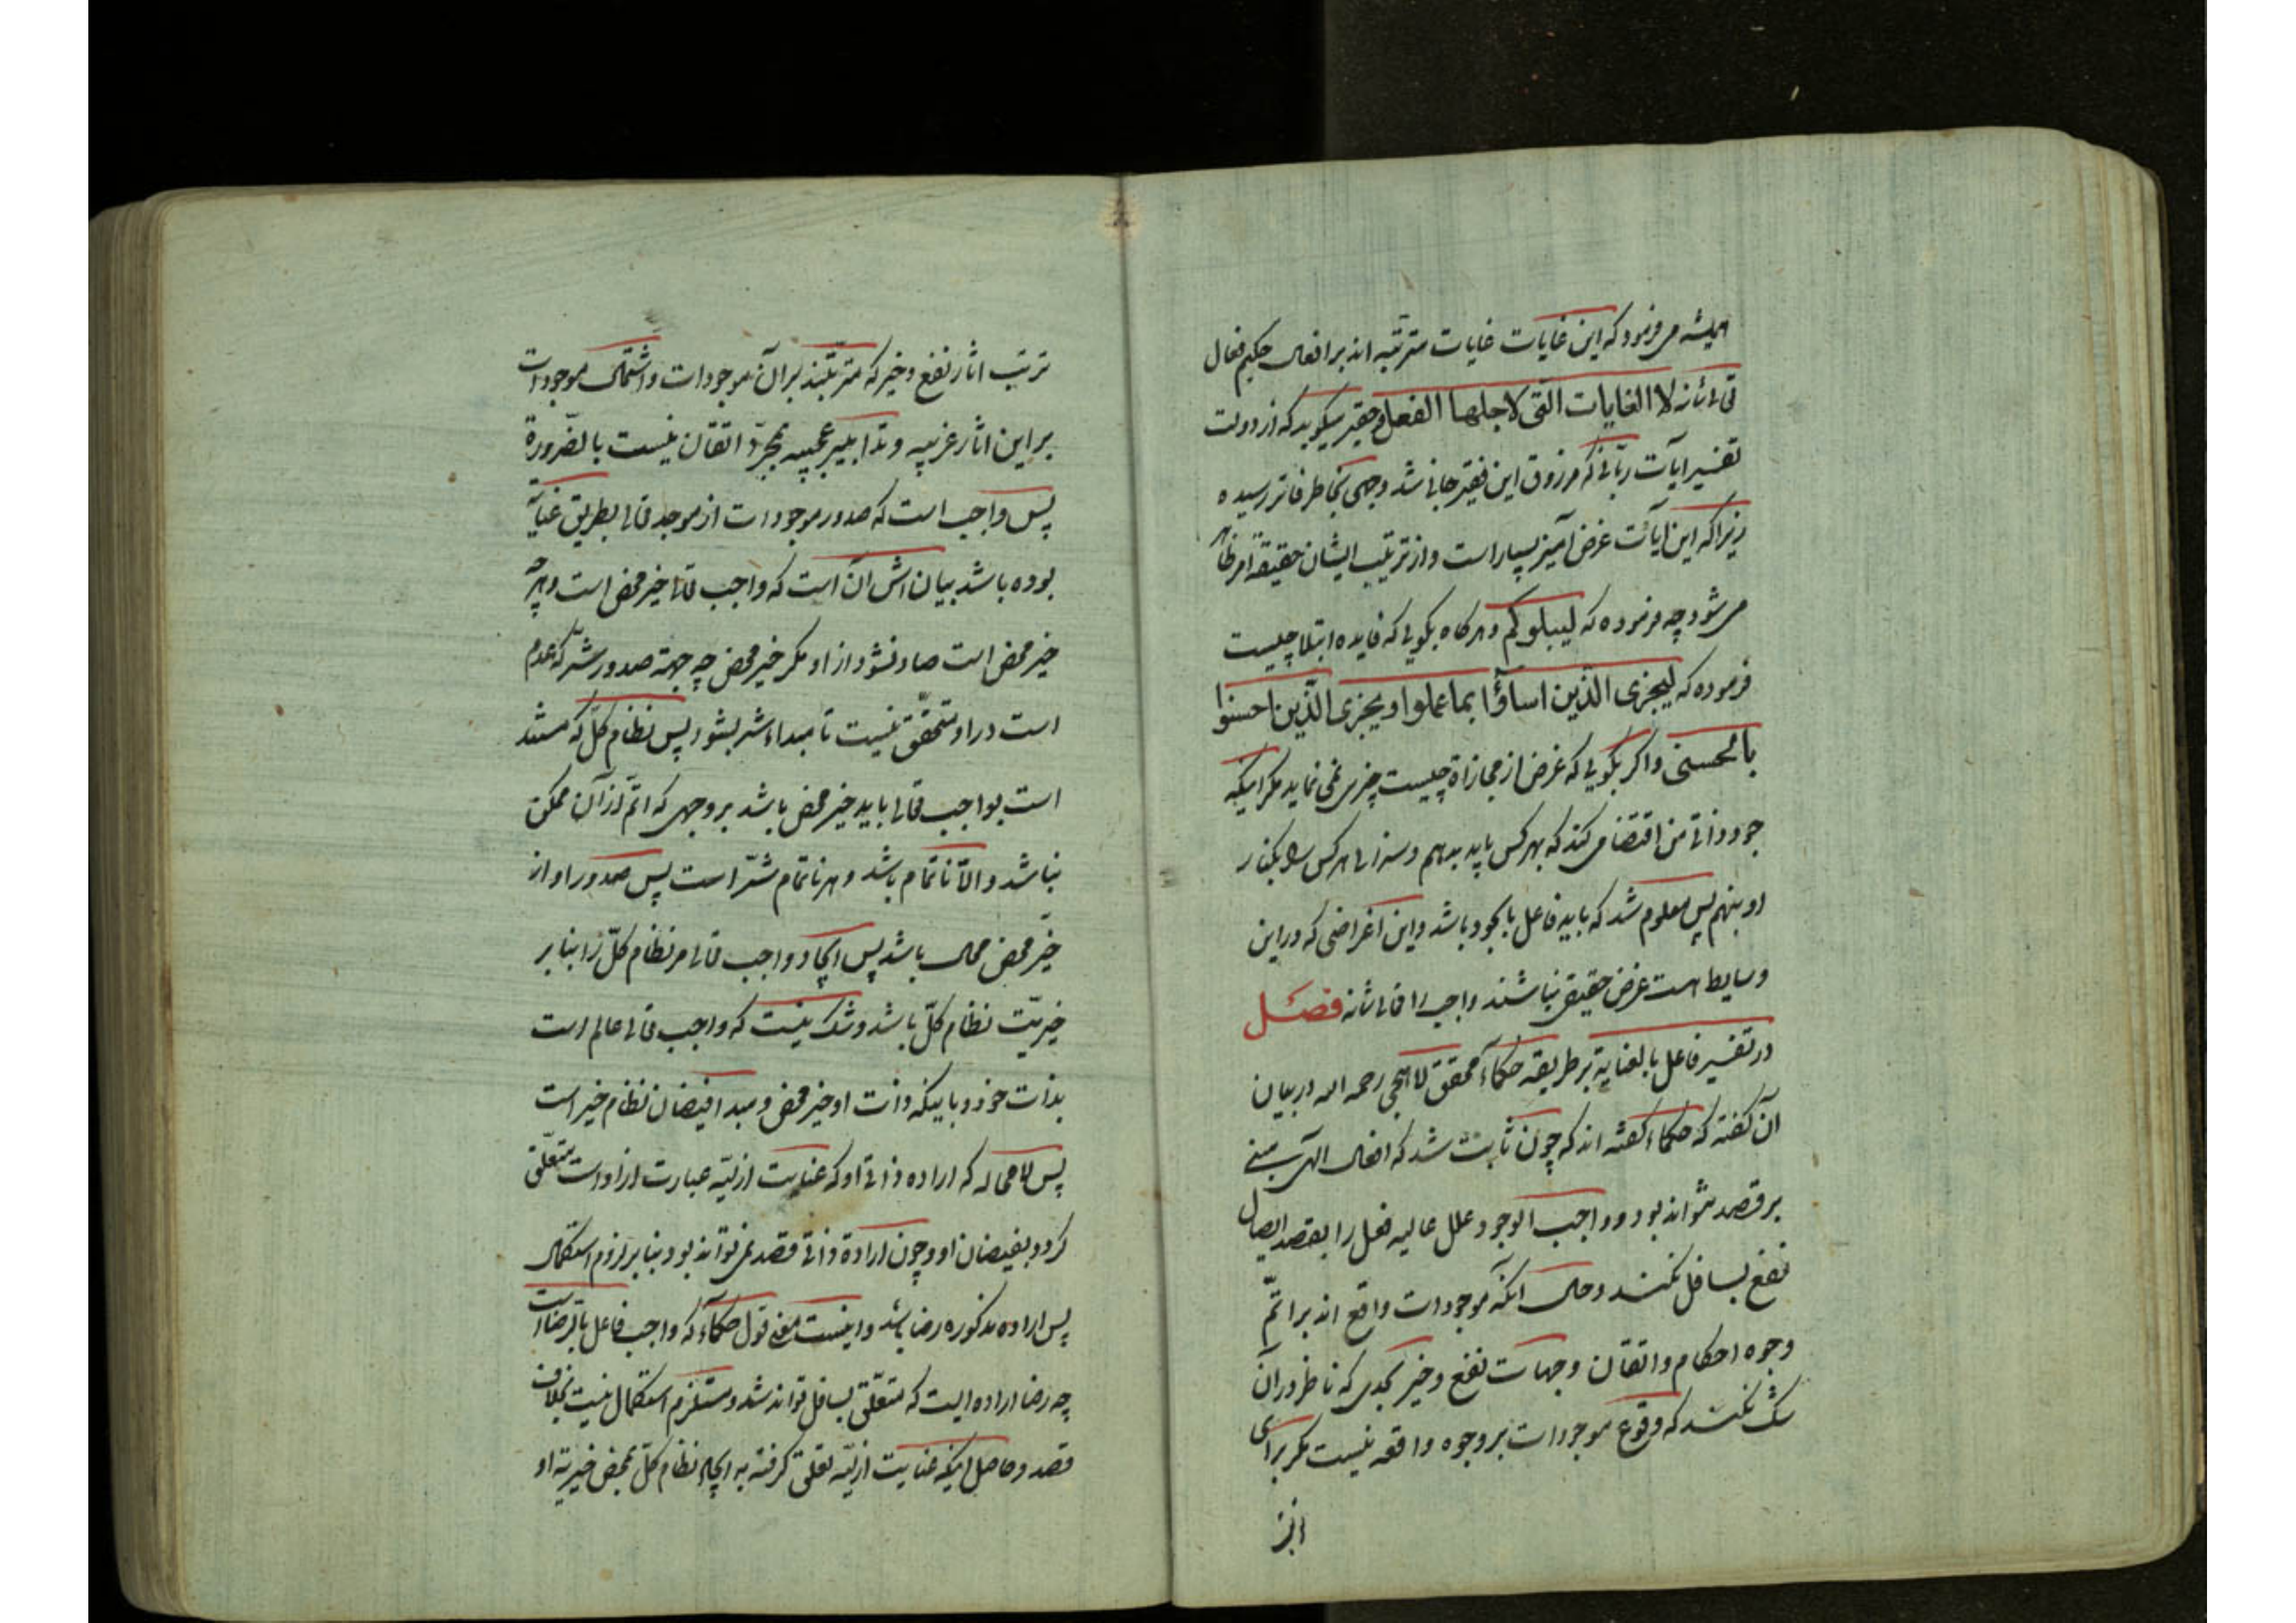 همیشه می فرمود که این غایات غایات مترتبه اند بر افعال حکیم فعال
تعالی شانه لا الغایات التی لاجلها الفعل و حقیر میکوید که از دولت
تفسیر ایات ربانی که مرزوق این فقیر جانی شد وجهی بخاطر فاتر رسیده
زیرا که این آیات غرض آمیز بسیار است و از ترتیب ایشان حقیقة امر ظاهر
می شود چه فرموده که لیبلوکم و هرکاه بکویی که فایده ابتلا چیست
فرموده که لیجزی الذین اساؤا بما عملوا و یجزی الذین احسنوا
بالحسنی و اکر بکویی که غرض از مجازاة چیست چیزی نمی نماید مکر اینکه
جود ذاتی من اقتضا می کند که بهرکس باید بدهم و سزای هرکس را بکنار
او بنهم پس معلوم شد که باید فاعل بالجود باشد و این اغراضی که در این
وسایط هست غرض حقیقی نباشند واجب را تعالی شانه فصل
در تفسیر فاعل بالعنایة بر طریقه حکماء محقق لاهجی رحمه الله در بیان
آن کفته که حکماء کفته اند که چون ثابت شد که افعال الهی مبنی
بر قصد نتواند بود و واجب الوجود و علل عالیه فعل را بقصد ایصال
نفع بسافل نکنند و حال انکه موجودات واقع اند بر اتم
وجوه احکام و اتقان و جهات نفع و خیر بحدی که ناظر در آن
شک نکند که وقوع موجودات بر وجوه واقعه نیست مکر برای
ترتب اثار نفع و خیر که مترتبند بر آن موجودات و اشتمال موجودات
بر این اثار غریبه و تدابیر عجیبه بمجرد اتفاق نیست بالضرورة
پس واجب است که صدور موجودات از موجد تعالی بطریق عنایة
بوده باشد بیان اش آن است که واجب تعالی خیر محض است و هرچه
خیر محض است صادر نشود از او مکر خیر محض چه جهة صدور شر که عدم
است در او متحقق نیست تا مبداء شر بشود پس نظام کل که مستند
است بواجب تعالی باید خیر محض باشد بر وجهی که اتم از آن ممکن
نباشد و الا ناتمام باشد و هر ناتمام شر است پس صدور او از
خیر محض محال باشد پس ایجاد واجب تعالی مر نظام کل را بنا بر
خیریت نظام کل باشد و شک نیست که واجب تعالی عالم است
بذات خود و باینکه ذات او خیر محض و مبدا فیضان نظام خیر است
پس لا محاله که اراده ذاتی او که عنایت ازلیه عبارت از او است متعلق
کردد بفیضان او و چون ارادة ذاتی قصد نمی تواند بود بنا بر لزوم استکمال
پس اراده مذکوره رضا باشد و اینست معنی قول حکماء که واجب فاعل بالرضا است
چه رضا اراده ایست که متعلق بسافل تواند شد و مستلزم استکمال نیست بخلاف
قصد و حاصل اینکه عنایت ازلیه تعلق کرفته به ایجاد نظام کل بمحض خیریة او